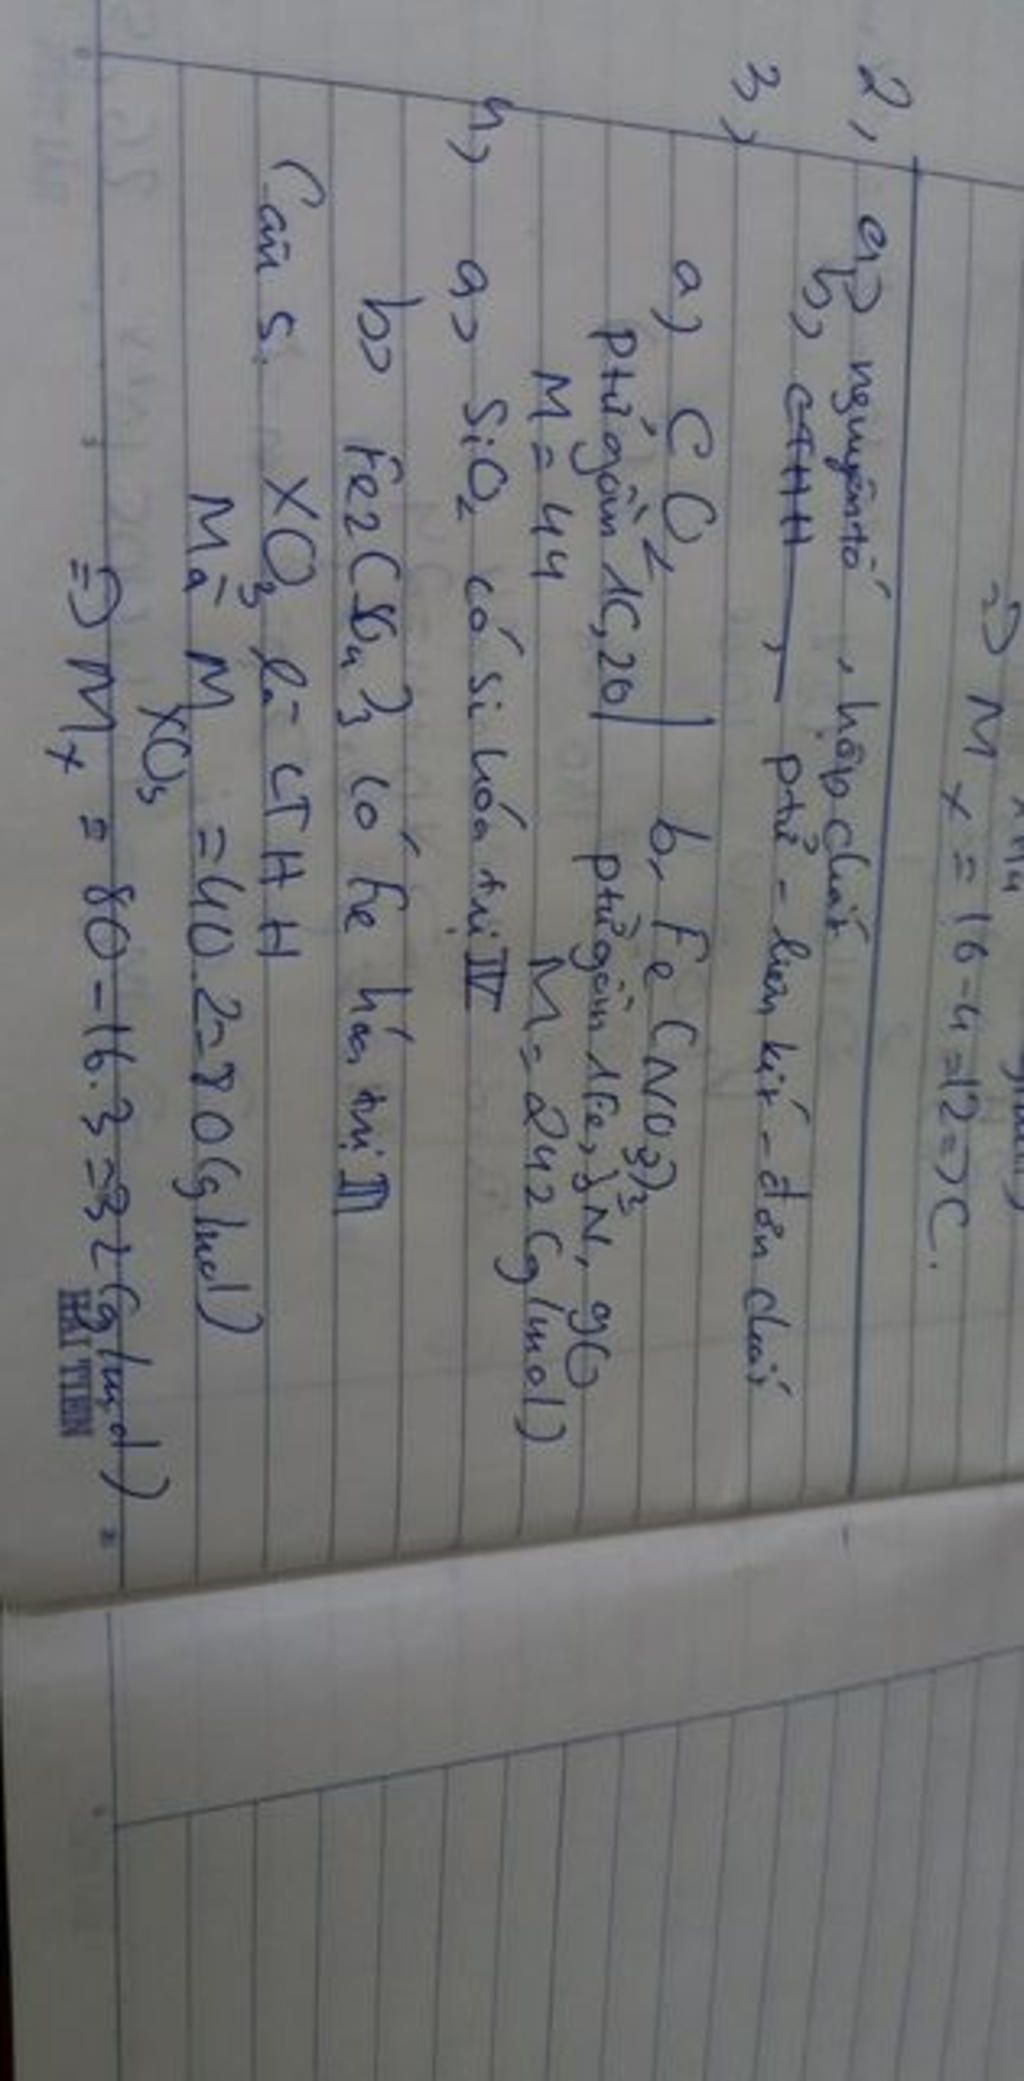 => M x = 16-4=12=>C.
2, a) nguyên tố, hợp chất
b, CTHH, ptử - liên kết - đơn chất
3,
a, CO2 b, Fe(NO3)3
ptử gồm 1C, 2O ptử gồm 1Fe, 3N, 9O
M = 44 M = 242 (g/mol)
4, a, SiO2 có Si hóa trị IV
b, Fe2(SO4)3 có Fe hóa trị III
Câu 5. XO3 là CTHH
Mà M XO3 = 40.2=80(g/mol)
=> Mx = 80-16.3=32(g/mol) =
HẢI TIẾN